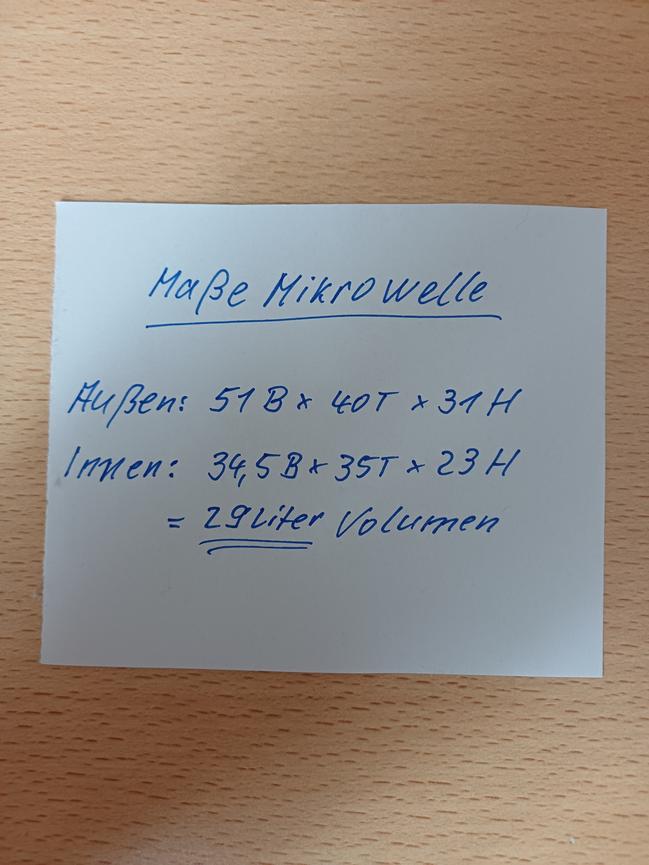 Maße Mikrowelle
Außen: 51 B x 40 T x 31 H
Innen: 34,5 B x 35 T x 23 H
= 29 Liter Volumen